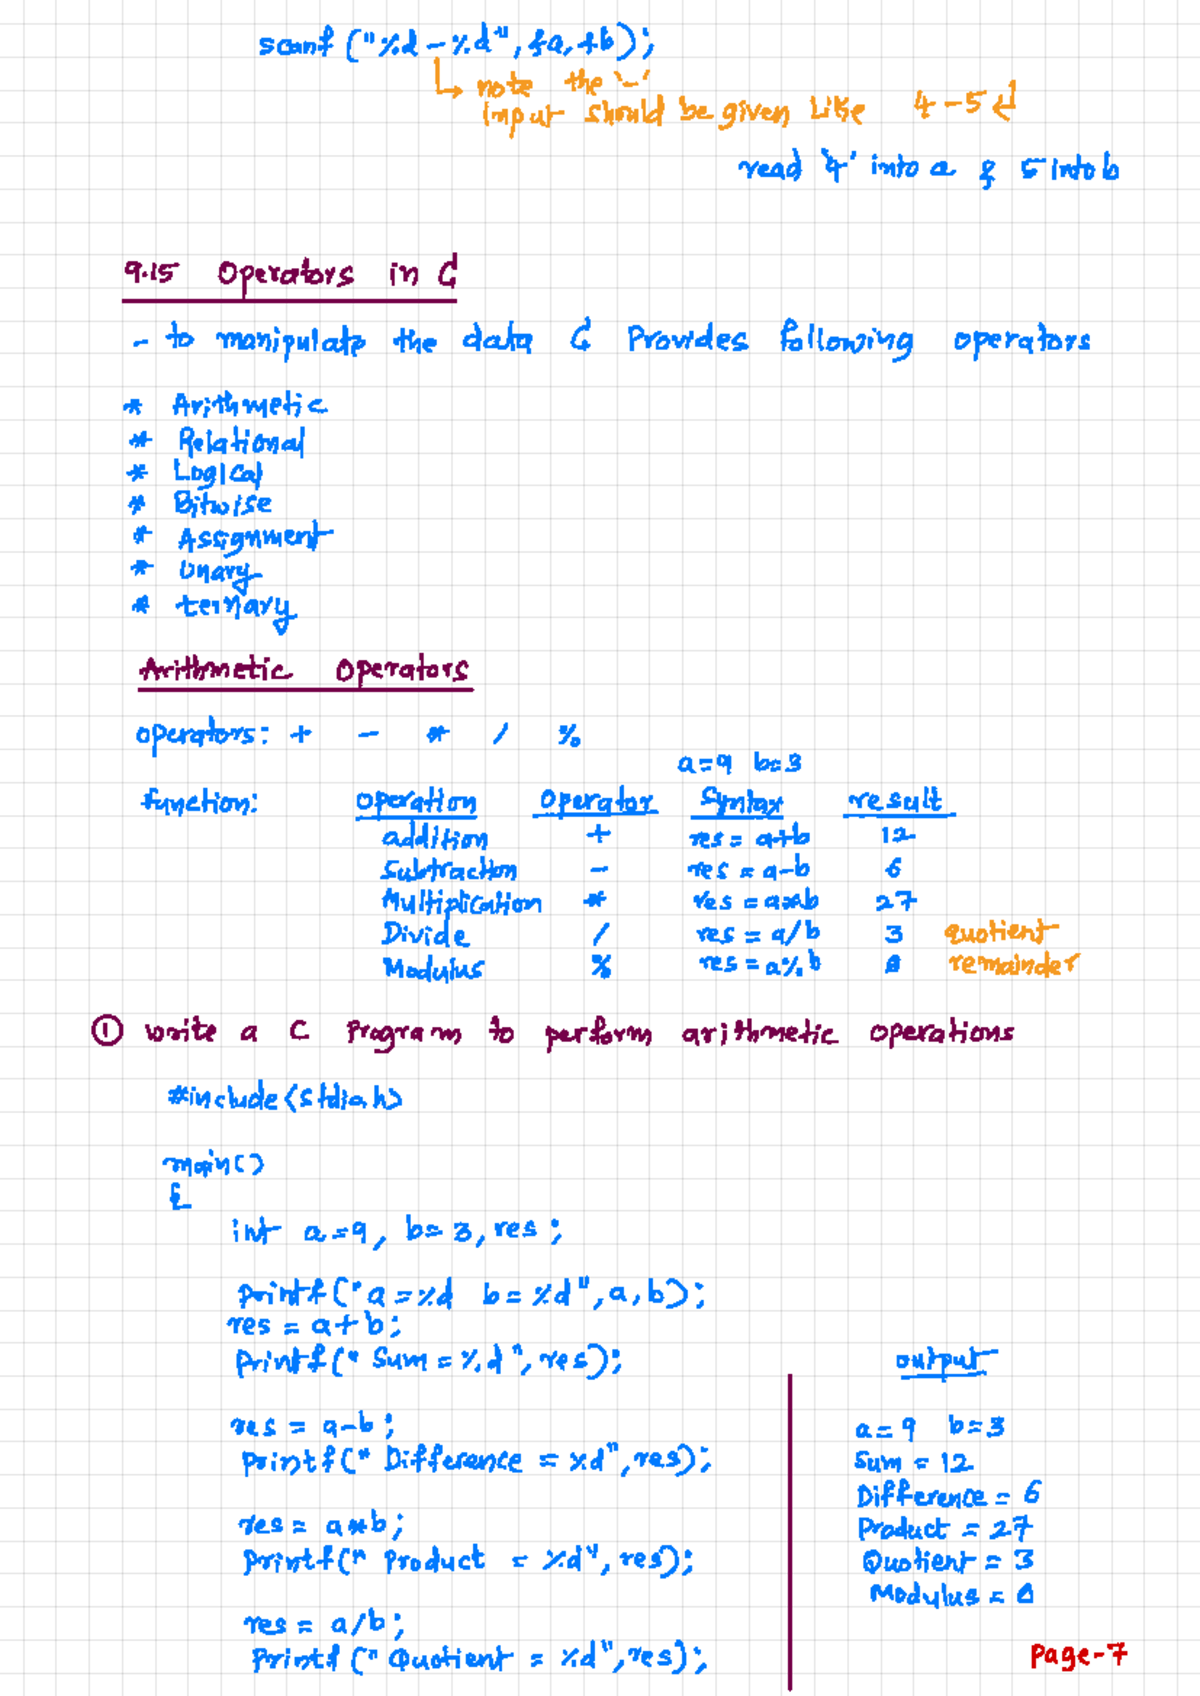 scanf ("%d-%d", &a, &b);
↳ note the '-'
input should be given like 4-5↵
read '4' into a & 5 into b
9.15 Operators in C
- to manipulate the data C Provides following operators
* Arithmetic
* Relational
* Logical
* Bitwise
* Assignment
* Unary
* ternary
Arithmetic Operators
operators: + - * / %
a=9 b=3
function: Operation Operator Syntax result
addition + res = a+b 12
Subtraction - res = a-b 6
Multiplication * res = a*b 27
Divide / res = a/b 3 quotient
Modulus % res = a%b 0 remainder
① write a C Program to perform arithmetic operations
#include<stdio.h>
main()
{
int a=9, b=3, res;
printf("a=%d b=%d", a, b);
res = a+b;
printf("Sum=%d", res);
res = a-b;
printf("Difference = %d", res);
res = a*b;
printf("Product = %d", res);
res = a/b;
printf("Quotient = %d", res);
output
a=9 b=3
Sum = 12
Difference = 6
Product = 27
Quotient = 3
Modulus = 0
Page-7